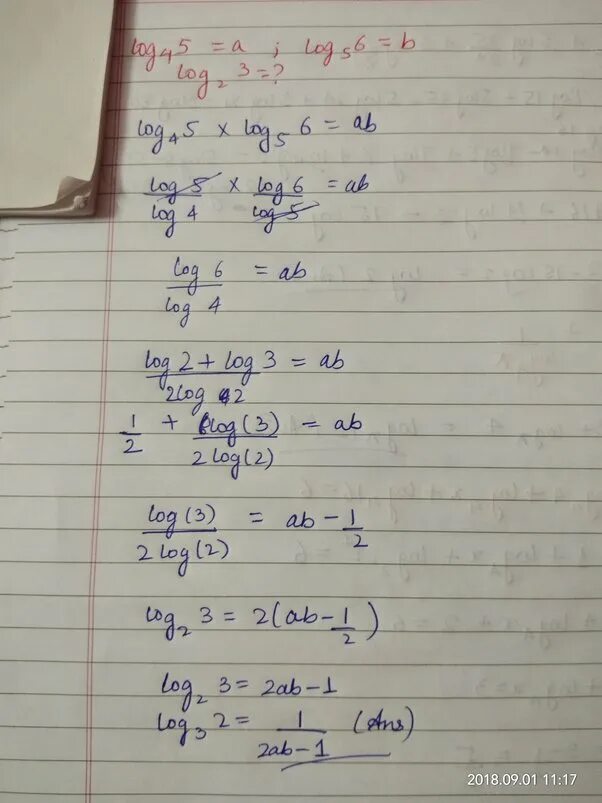 log₄5 = a ; log₅6 = b
log₂ 3 = ?
log₄5 × log₅ 6 = ab
log 5/log 4 × log 6/log 5 = ab
log 6/log 4 = ab
(log 2 + log 3)/(2log 2) = ab
1/2 + log(3)/2log(2) = ab
log(3)/2log(2) = ab - 1/2
log₂ 3 = 2(ab - 1/2)
log₂ 3 = 2ab - 1
log₃ 2 = 1/(2ab - 1) (Ans)
2018.09.01 11:17